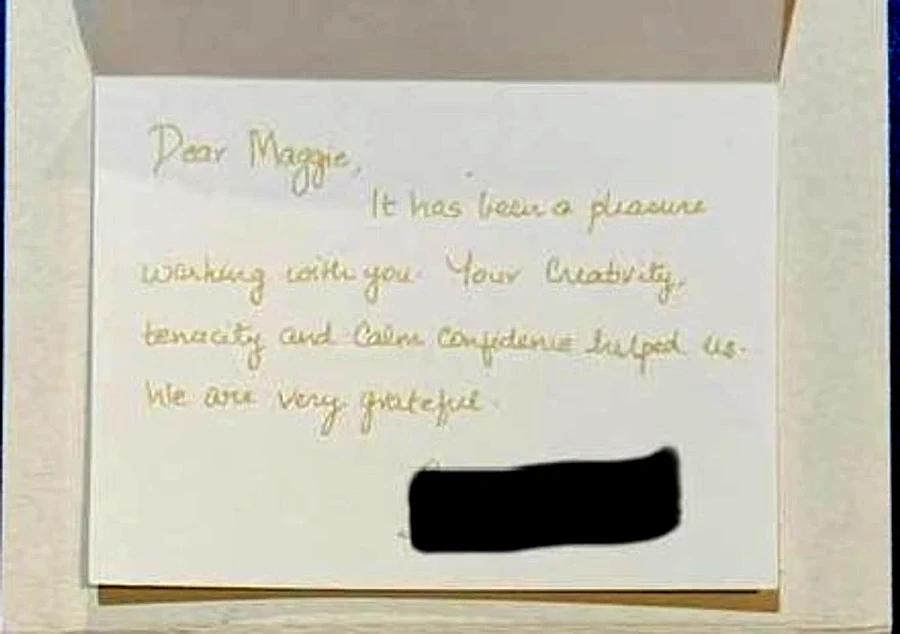 Dear Maggie,
It has been a pleasure
working with you. Your Creativity,
tenacity and Calm Confidence helped us.
We are very grateful.